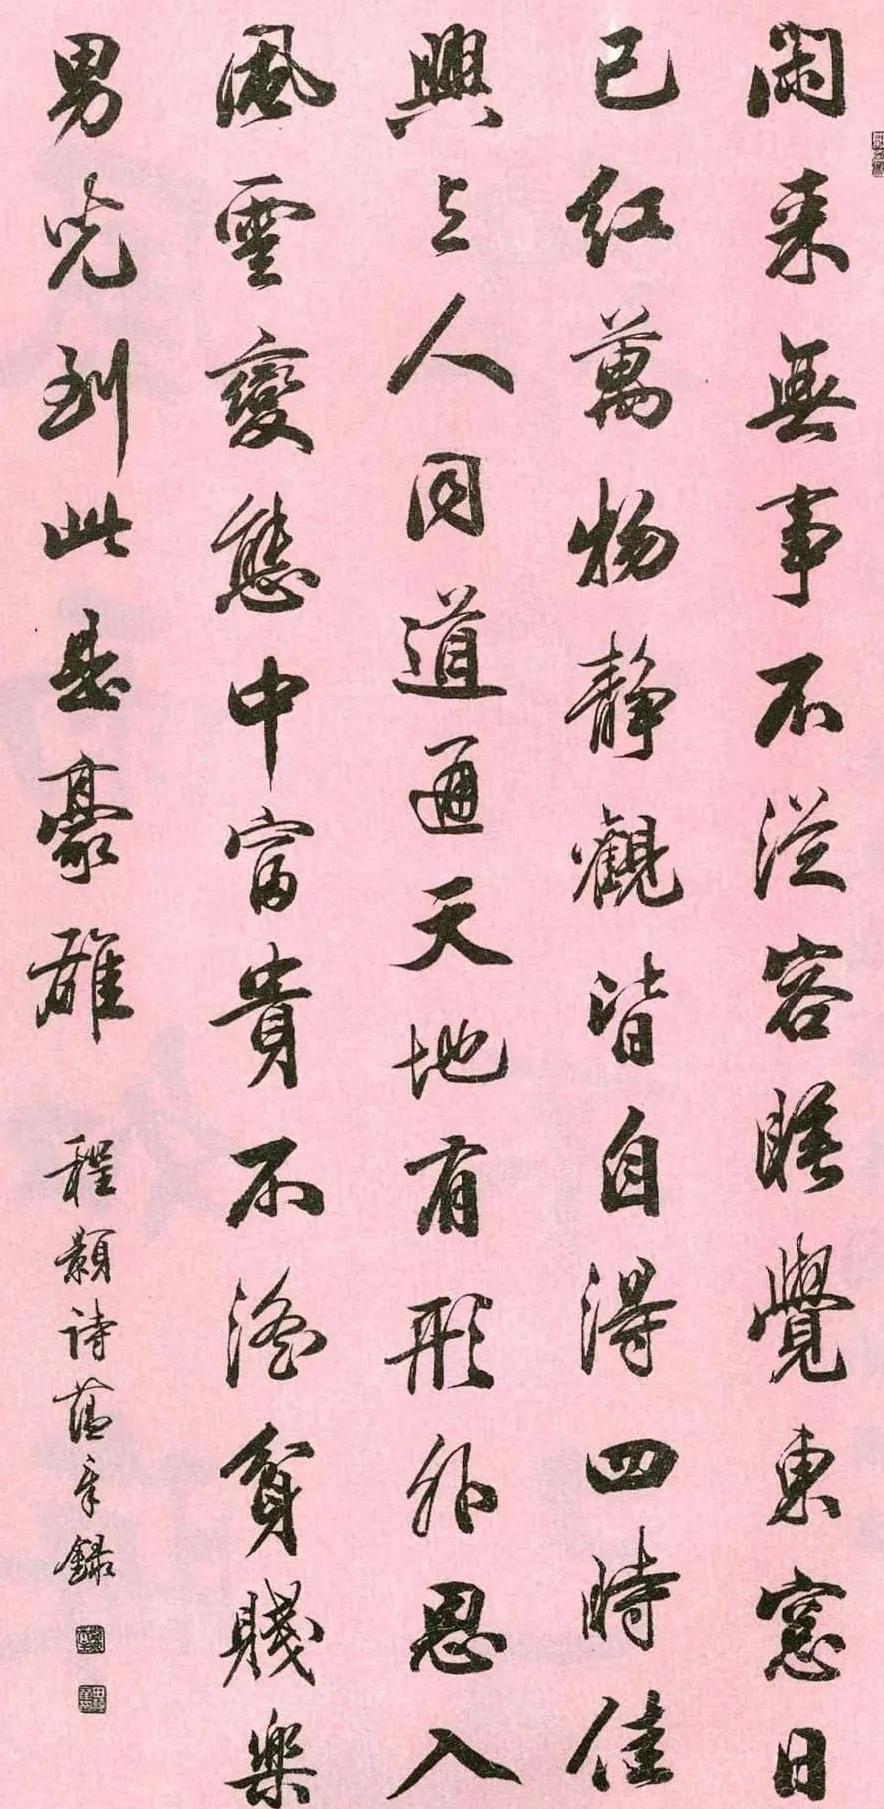 闲来無事不從容睡覺東窓日
已红萬物静觀皆自得四時佳
興與人同道通天地有形外思入
風雲變態中富貴不淫貧賤樂
男兒到此是豪雄
程顥詩蕴章錄